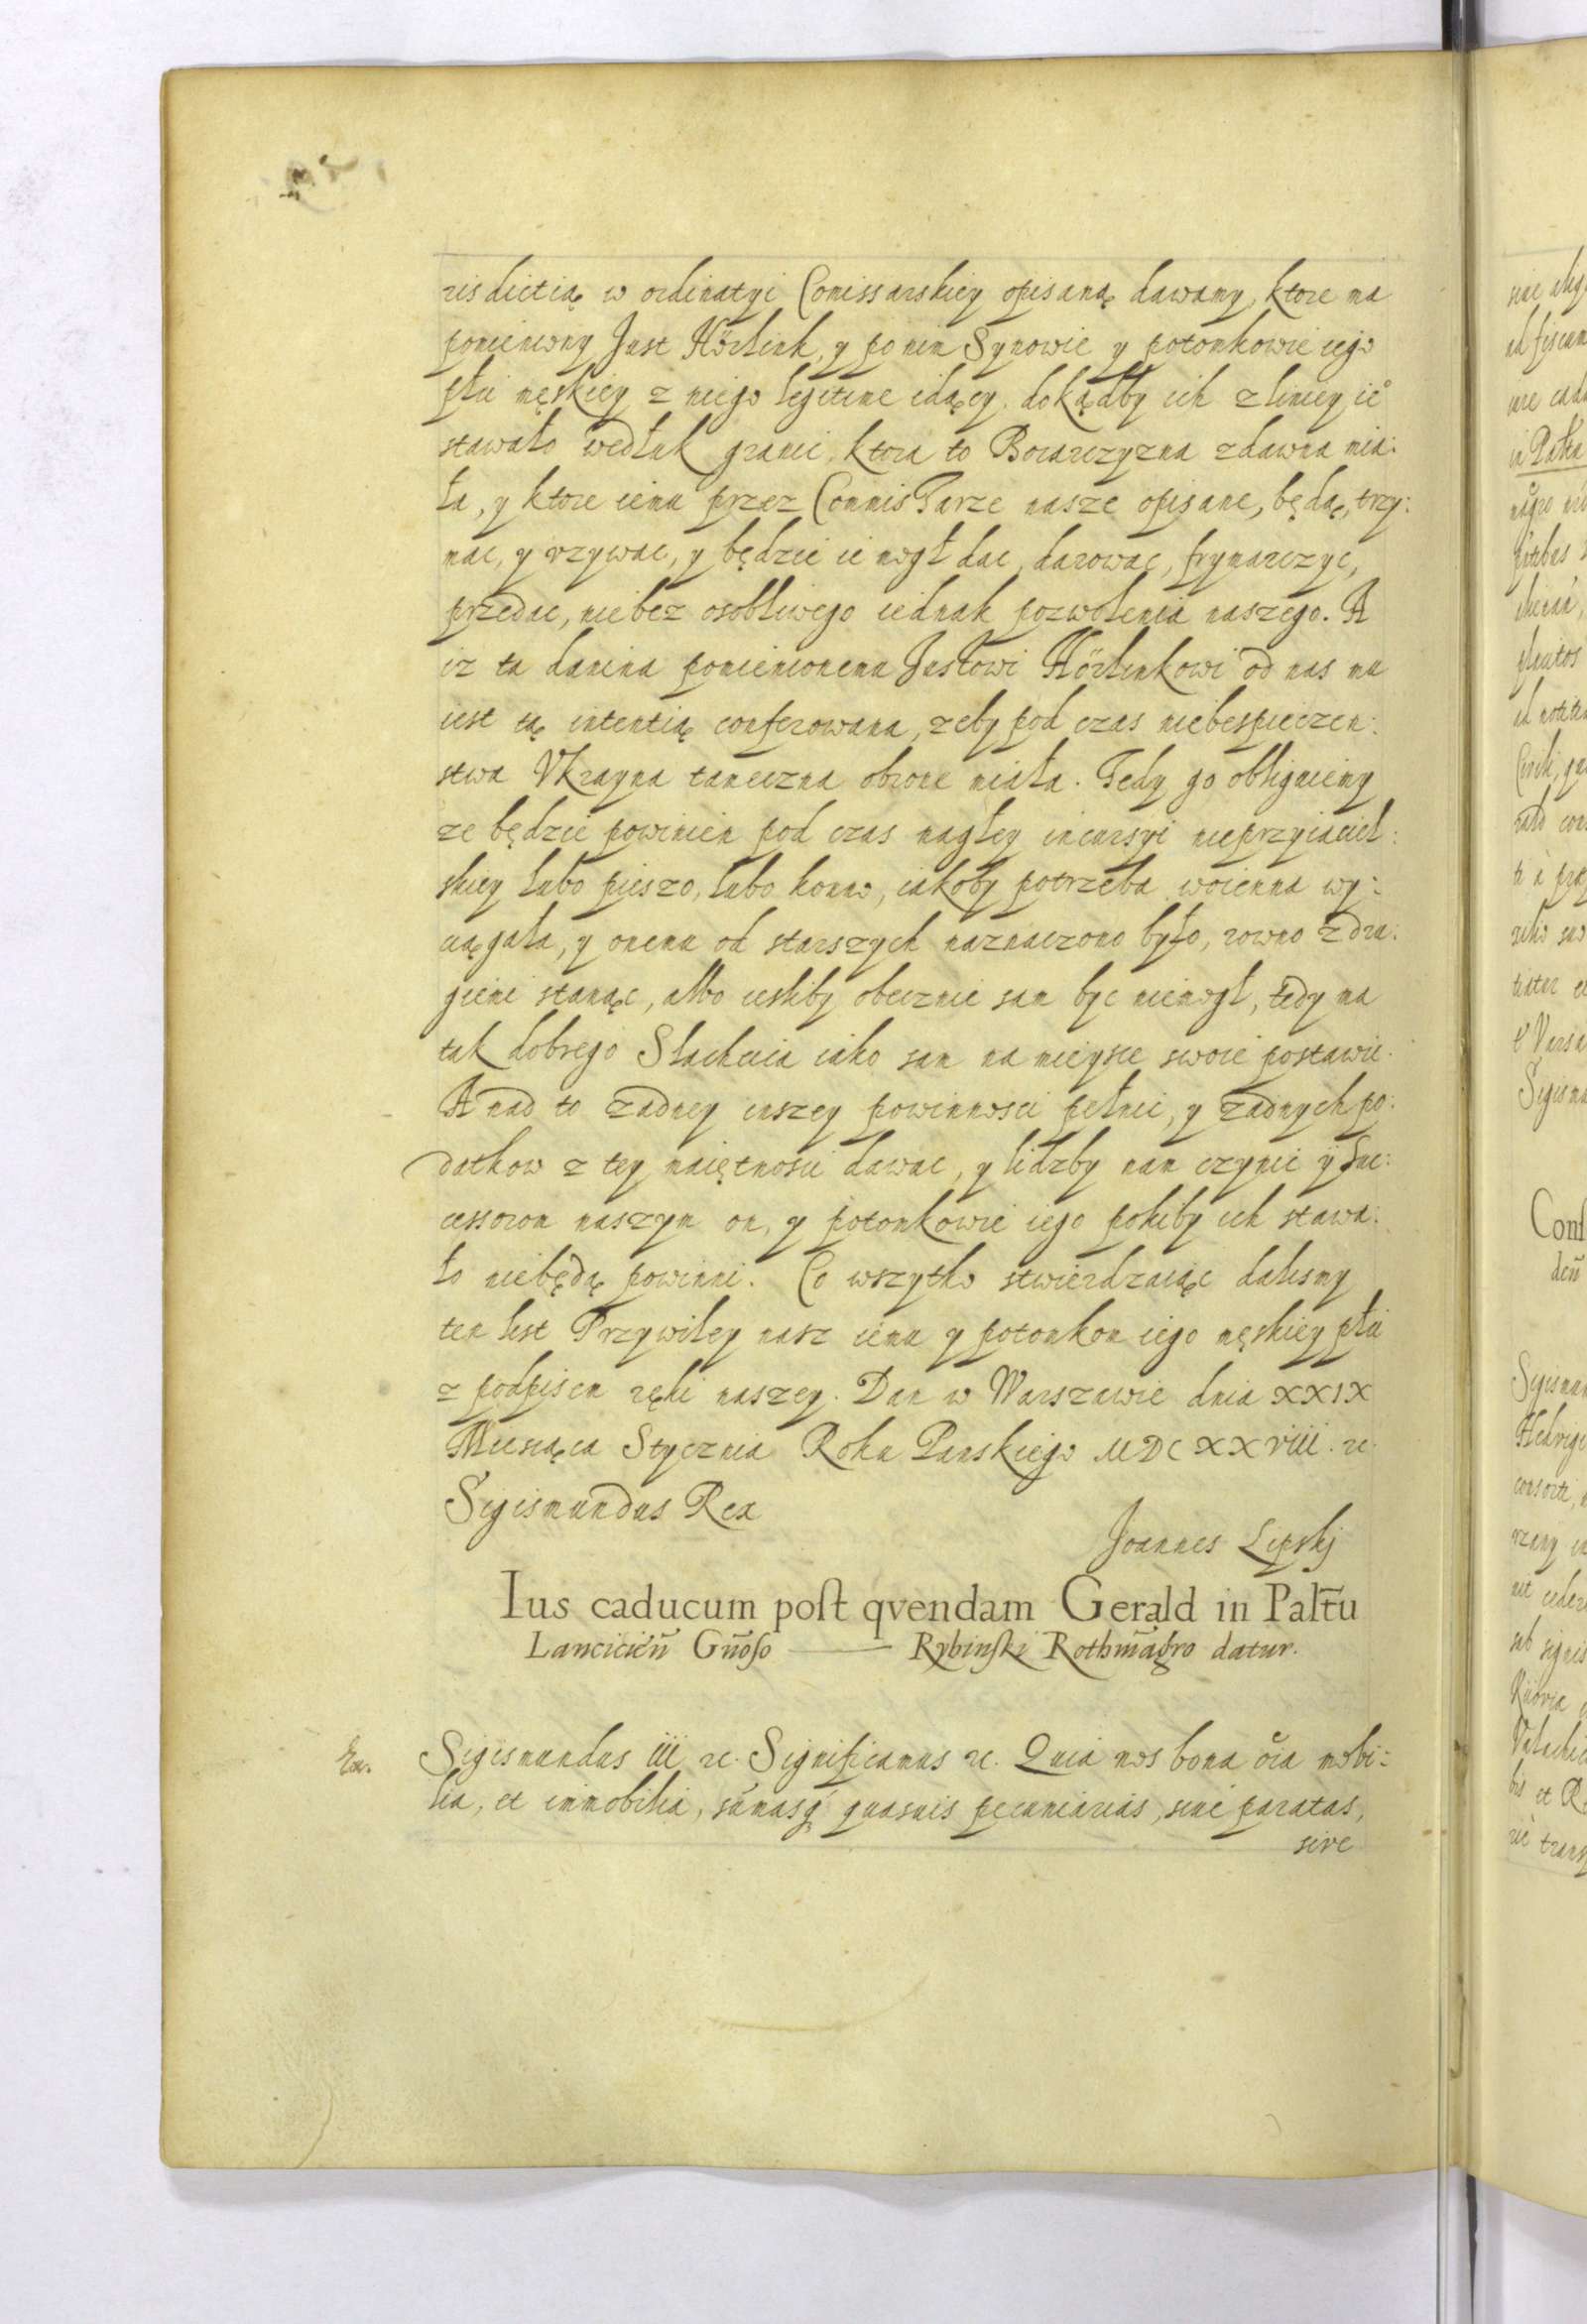 risdictią w ordinatyi Comissarskiey opisaną dawamy, ktore ma
pomieniony Just Hörlink, y po nim Synowie y potomkowie iego
płci męskiey z niego legitime idący, dokądby ich z liniey ie°
stawało wedłuk granic, ktora to Boiarczyzna zdawna mia:
ła, y ktore iemu przez Commissarze nasze opisane, będą, trzy:
mac, y vzywac, y będzie ie mogł dac, darowac, frymarczyc,
przedac, niebez osobliwego iednak pozwolenia naszego. A
iz ta danina pomienionemu Justowi Hörlinkowi od nas ma
iest tą intentią conferowana, zeby pod czas niebespieczen:
stwa Vkrayna tameczna obrone miała. Tedy go obliguiemy
ze będzie powinien pod czas nagłey incursyi nieprzyiaciel:
skiey lubo pieszo, lubo konno, iakoby potrzeba woienna wy:
ciągała, y onemu od starszych naznaczono było, rowno z dru:
giemi stanąc, albo iesliby obecznie sam byc niemogł, tedy ma
tak dobrego Slachcica iako sam na mieysce swoie postawic.
A nad to zadney inszey powinnosci pełnic, y zadnych po:
datkow z tey maiętnosci dawac, y lidzby nam czynic y suc:
cessorom naszym on, y potomkowie iego pokiby ich stawa:
ło niebędą powinni. Co wszytko stwierdzaiąc dalismy
ten list Przywiley nasz iemu y potomkom iego męskiey płci
z podpisem ręki naszey. Dan w Warszawie dnia XXIX
Miesiąca Stycznia Roku Panskiego MDCXXVIII. rc
Sigismundus Rex
Joannes Lipskj
Ius caducum post qvendam Gerald in Palt̃u
Lancicieñ Gñoso — Rybinski Rothm̃agro datur.
Sigismundus iii rc. Significamus rc. Quia nos bona õia mobi:
lia, et immobilia, sũmasq̃ quasuis pecuniarias, siue paratas,
sive